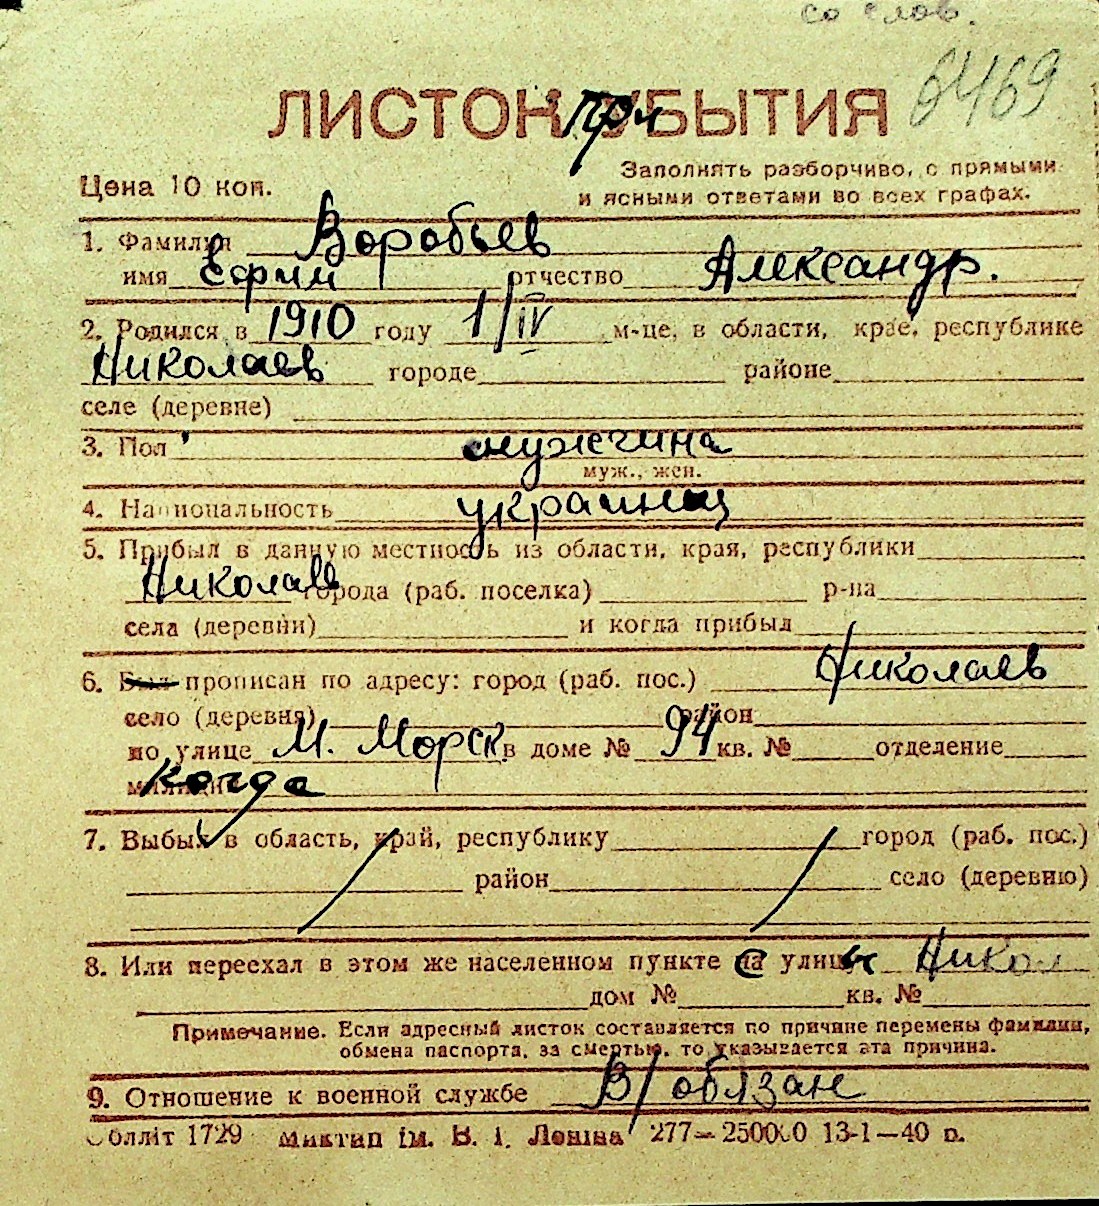 со слов.
6469
ЛИСТОК ПРИБЫТИЯ
Цена 10 коп.
Заполнять разборчиво, с прямыми
и ясными ответами во всех графах.
1. Фамилия Воробьев
имя Ефим отчество Александр.
2. Родился в 1910 году 1/IV м-це, в области, крае, республике
Николаев городе районе
селе (деревне)
3. Пол мужчина
муж., жен.
4. Национальность украинец
5. Прибыл в данную местность из области, края, республики
Николаев города (раб. поселка) р-на
села (деревни) и когда прибыл
6. Был прописан по адресу: город (раб. пос.) Николаев
село (деревня) район
по улице М. Морск в доме № 94 кв. № отделение
милиции когда
7. Выбыл в область, край, республику город (раб. пос.)
район село (деревню)
8. Или переехал в этом же населенном пункте с улицы Никол
дом № кв. №
Примечание. Если адресный листок составляется по причине перемены фамилии,
обмена паспорта, за смертью, то указывается эта причина.
9. Отношение к военной службе В/обязан
Облліт 1729 Миктип ім. В. І. Леніна 277—250000 13-1—40 р.